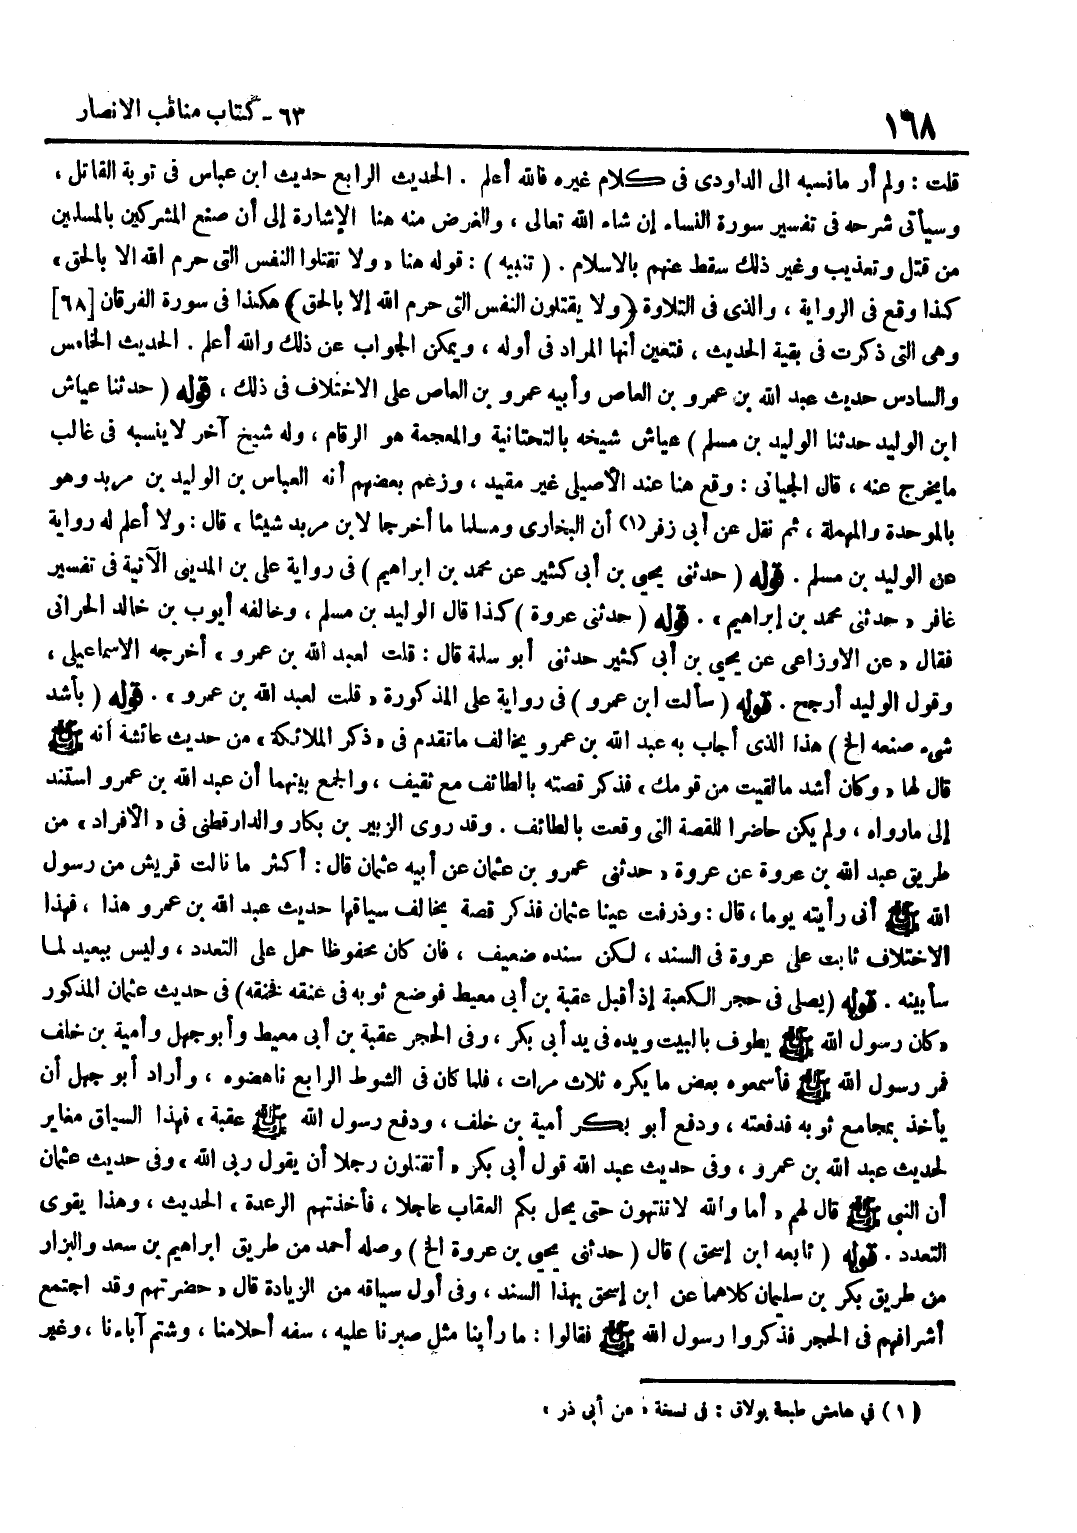 ١٦٨
٦٣ - كتاب مناقب الانصار
قلت : ولم أر مانسبه الى الداودى فى كلام غيره فالله أعلم . الحديث الرابع حديث ابن عباس فى توبة القاتل ،
وسيأتى شرحه فى تفسير سورة النساء إن شاء الله تعالى ، والغرض منه هنا الإشارة إلى أن صنع المشركين بالمسلمين
من قتل وتعذيب وغير ذلك سقط عنهم بالاسلام . ( تنبيه ) : قوله هنا « ولا تقتلوا النفس التى حرم الله الا بالحق »
كذا وقع فى الرواية ، والذى فى التلاوة ﴿ولا يقتلون النفس التى حرم الله إلا بالحق﴾ هكذا فى سورة الفرقان [٦٨]
وهى التى ذكرت فى بقية الحديث ، فتعين أنها المراد فى أوله ، ويمكن الجواب عن ذلك والله أعلم . الحديث الخامس
والسادس حديث عبد الله بن عمرو بن العاص وأبيه عمرو بن العاص على الاختلاف فى ذلك ، قوله ( حدثنا عياش
ابن الوليد حدثنا الوليد بن مسلم ) عياش شيخه بالتحتانية والمعجمة هو الرقام ، وله شيخ آخر لاينسبه فى غالب
مايخرج عنه ، قال الجيانى : وقع هنا عند الأصيلى غير مقيد ، وزعم بعضهم أنه العباس بن الوليد بن مربد وهو
بالموحدة والمهملة ، ثم نقل عن أبى زفر (١) أن البخارى ومسلما ما أخرجا لابن مربد شيئا ، قال : ولا أعلم له رواية
عن الوليد بن مسلم . قوله ( حدثنى يحيى بن أبى كثير عن محمد بن ابراهيم ) فى رواية على بن المدينى الآتية فى تفسير
غافر « حدثنى محمد بن إبراهيم » . قوله ( حدثنى عروة ) كذا قال الوليد بن مسلم ، وخالفه أيوب بن خالد الحرانى
فقال « عن الاوزاعى عن يحيى بن أبى كثير حدثنى أبو سلمة قال : قلت لعبد الله بن عمرو » أخرجه الاسماعيلى ،
وقول الوليد أرجح . قوله ( سألت ابن عمرو ) فى رواية على المذكورة « قلت لعبد الله بن عمرو » . قوله ( بأشد
شىء صنعه الخ ) هذا الذى أجاب به عبد الله بن عمرو يخالف ماتقدم فى « ذكر الملائكة » من حديث عائشة أنه ﷺ
قال لها « وكان أشد مالقيت من قومك » فذكر قصته بالطائف مع ثقيف ، والجمع بينهما أن عبد الله بن عمرو استند
إلى مارواه ، ولم يكن حاضرا للقصة التى وقعت بالطائف . وقد روى الزبير بن بكار والدارقطنى فى « الأفراد » من
طريق عبد الله بن عروة عن عروة « حدثنى عمرو بن عثمان عن أبيه عثمان قال : أكثر ما نالت قريش من رسول
الله ﷺ أنى رأيته يوما ، قال : وذرفت عينا عثمان فذكر قصة يخالف سياقها حديث عبد الله بن عمرو هذا ، فهذا
الاختلاف ثابت على عروة فى السند ، لكن سنده ضعيف ، فان كان محفوظا حمل على التعدد ، وليس ببعيد لما
سأبينه . قوله (يصلى فى حجر الكعبة إذ أقبل عقبة بن أبى معيط فوضع ثوبه فى عنقه فخنقه) فى حديث عثمان المذكور
« كان رسول الله ﷺ يطوف بالبيت ويده فى يد أبى بكر ، وفى الحجر عقبة بن أبى معيط وأبو جهل وأمية بن خلف
فمر رسول الله ﷺ فأسمعوه بعض مايكره ثلاث مرات ، فلما كان فى الشوط الرابع ناهضوه ، وأراد أبو جهل أن
يأخذ بمجامع ثوبه فدفعته ، ودفع أبو بكر أمية بن خلف ، ودفع رسول الله ﷺ عقبة ، فهذا السياق مغاير
لحديث عبد الله بن عمرو ، وفى حديث عبد الله قول أبى بكر « أتقتلون رجلا أن يقول ربى الله » وفى حديث عثمان
أن النبى ﷺ قال لهم « أما والله لاتنتهون حتى يحل بكم العقاب عاجلا ، فأخذتهم الرعدة » الحديث ، وهذا يقوى
التعدد . قوله ( تابعه ابن إسحق ) قال ( حدثنى يحيى بن عروة الخ ) وصله أحمد من طريق ابراهيم بن سعد والبزار
من طريق بكر بن سليمان كلاهما عن ابن إسحق بهذا السند ، وفى أول سياقه من الزيادة قال « حضرتهم وقد اجتمع
أشرافهم فى الحجر فذكروا رسول الله ﷺ فقالوا : ما رأينا مثل صبرنا عليه ، سفه أحلامنا ، وشتم آباءنا ، وغير
(١) في هامش طبعة بولاق : فى نسخة « عن أبى ذر »